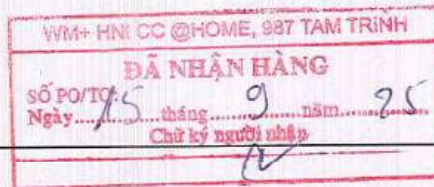 WM+ HNI CC @HOME, 987 TAM TRINH
ĐÃ NHẬN HÀNG
SỐ PO/TO:
Ngày....15....tháng....9....năm....25....
Chữ ký người nhận